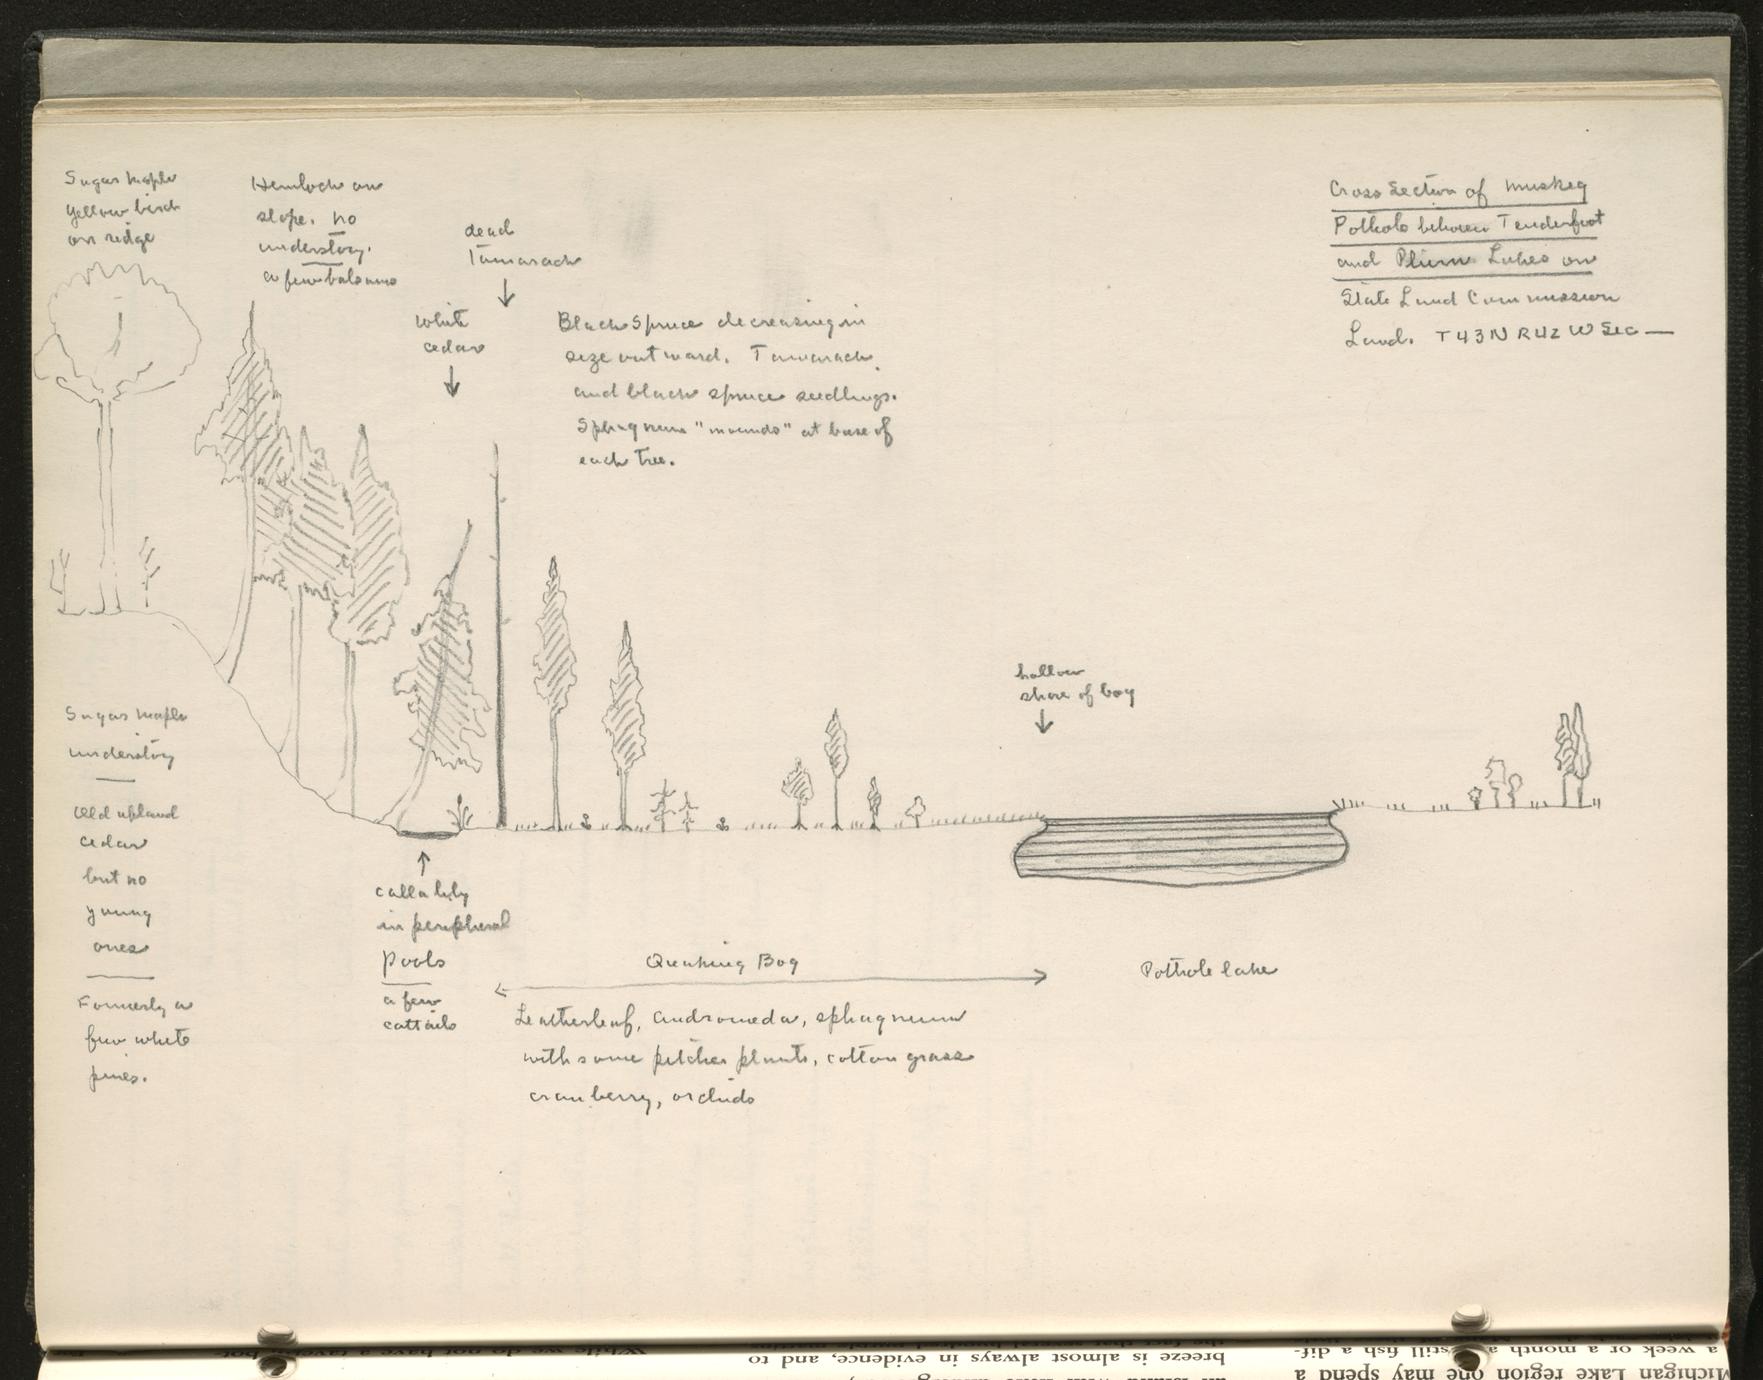 Sugar maple
yellow birch
on ridge
Hemlock on
slope. no
understory.
a few balsams
dead
Tamarack
white
cedar
Black Spruce decreasing in
size outward. Tamarack
and black spruce seedlings.
Sphagnum "mounds" at base of
each tree.
Cross Section of muskeg
Pothole between Tenderfoot
and Plum Lakes on
State Land Commission
Land. T43N R42W Sec —
hollow
shore of bog
Sugar maple
understory
Old upland
cedar
but no
young
ones
Formerly a
few white
pines.
calla lily
in peripheral
pools
a few
cattails
Quaking Bog
Leatherleaf, andromeda, sphagnum
with some pitcher plants, cotton grass
cranberry, orchids
Pothole lake
breeze is almost always in evidence, and to
a week or a month and still fish a dif-
Michigan Lake region one may spend a